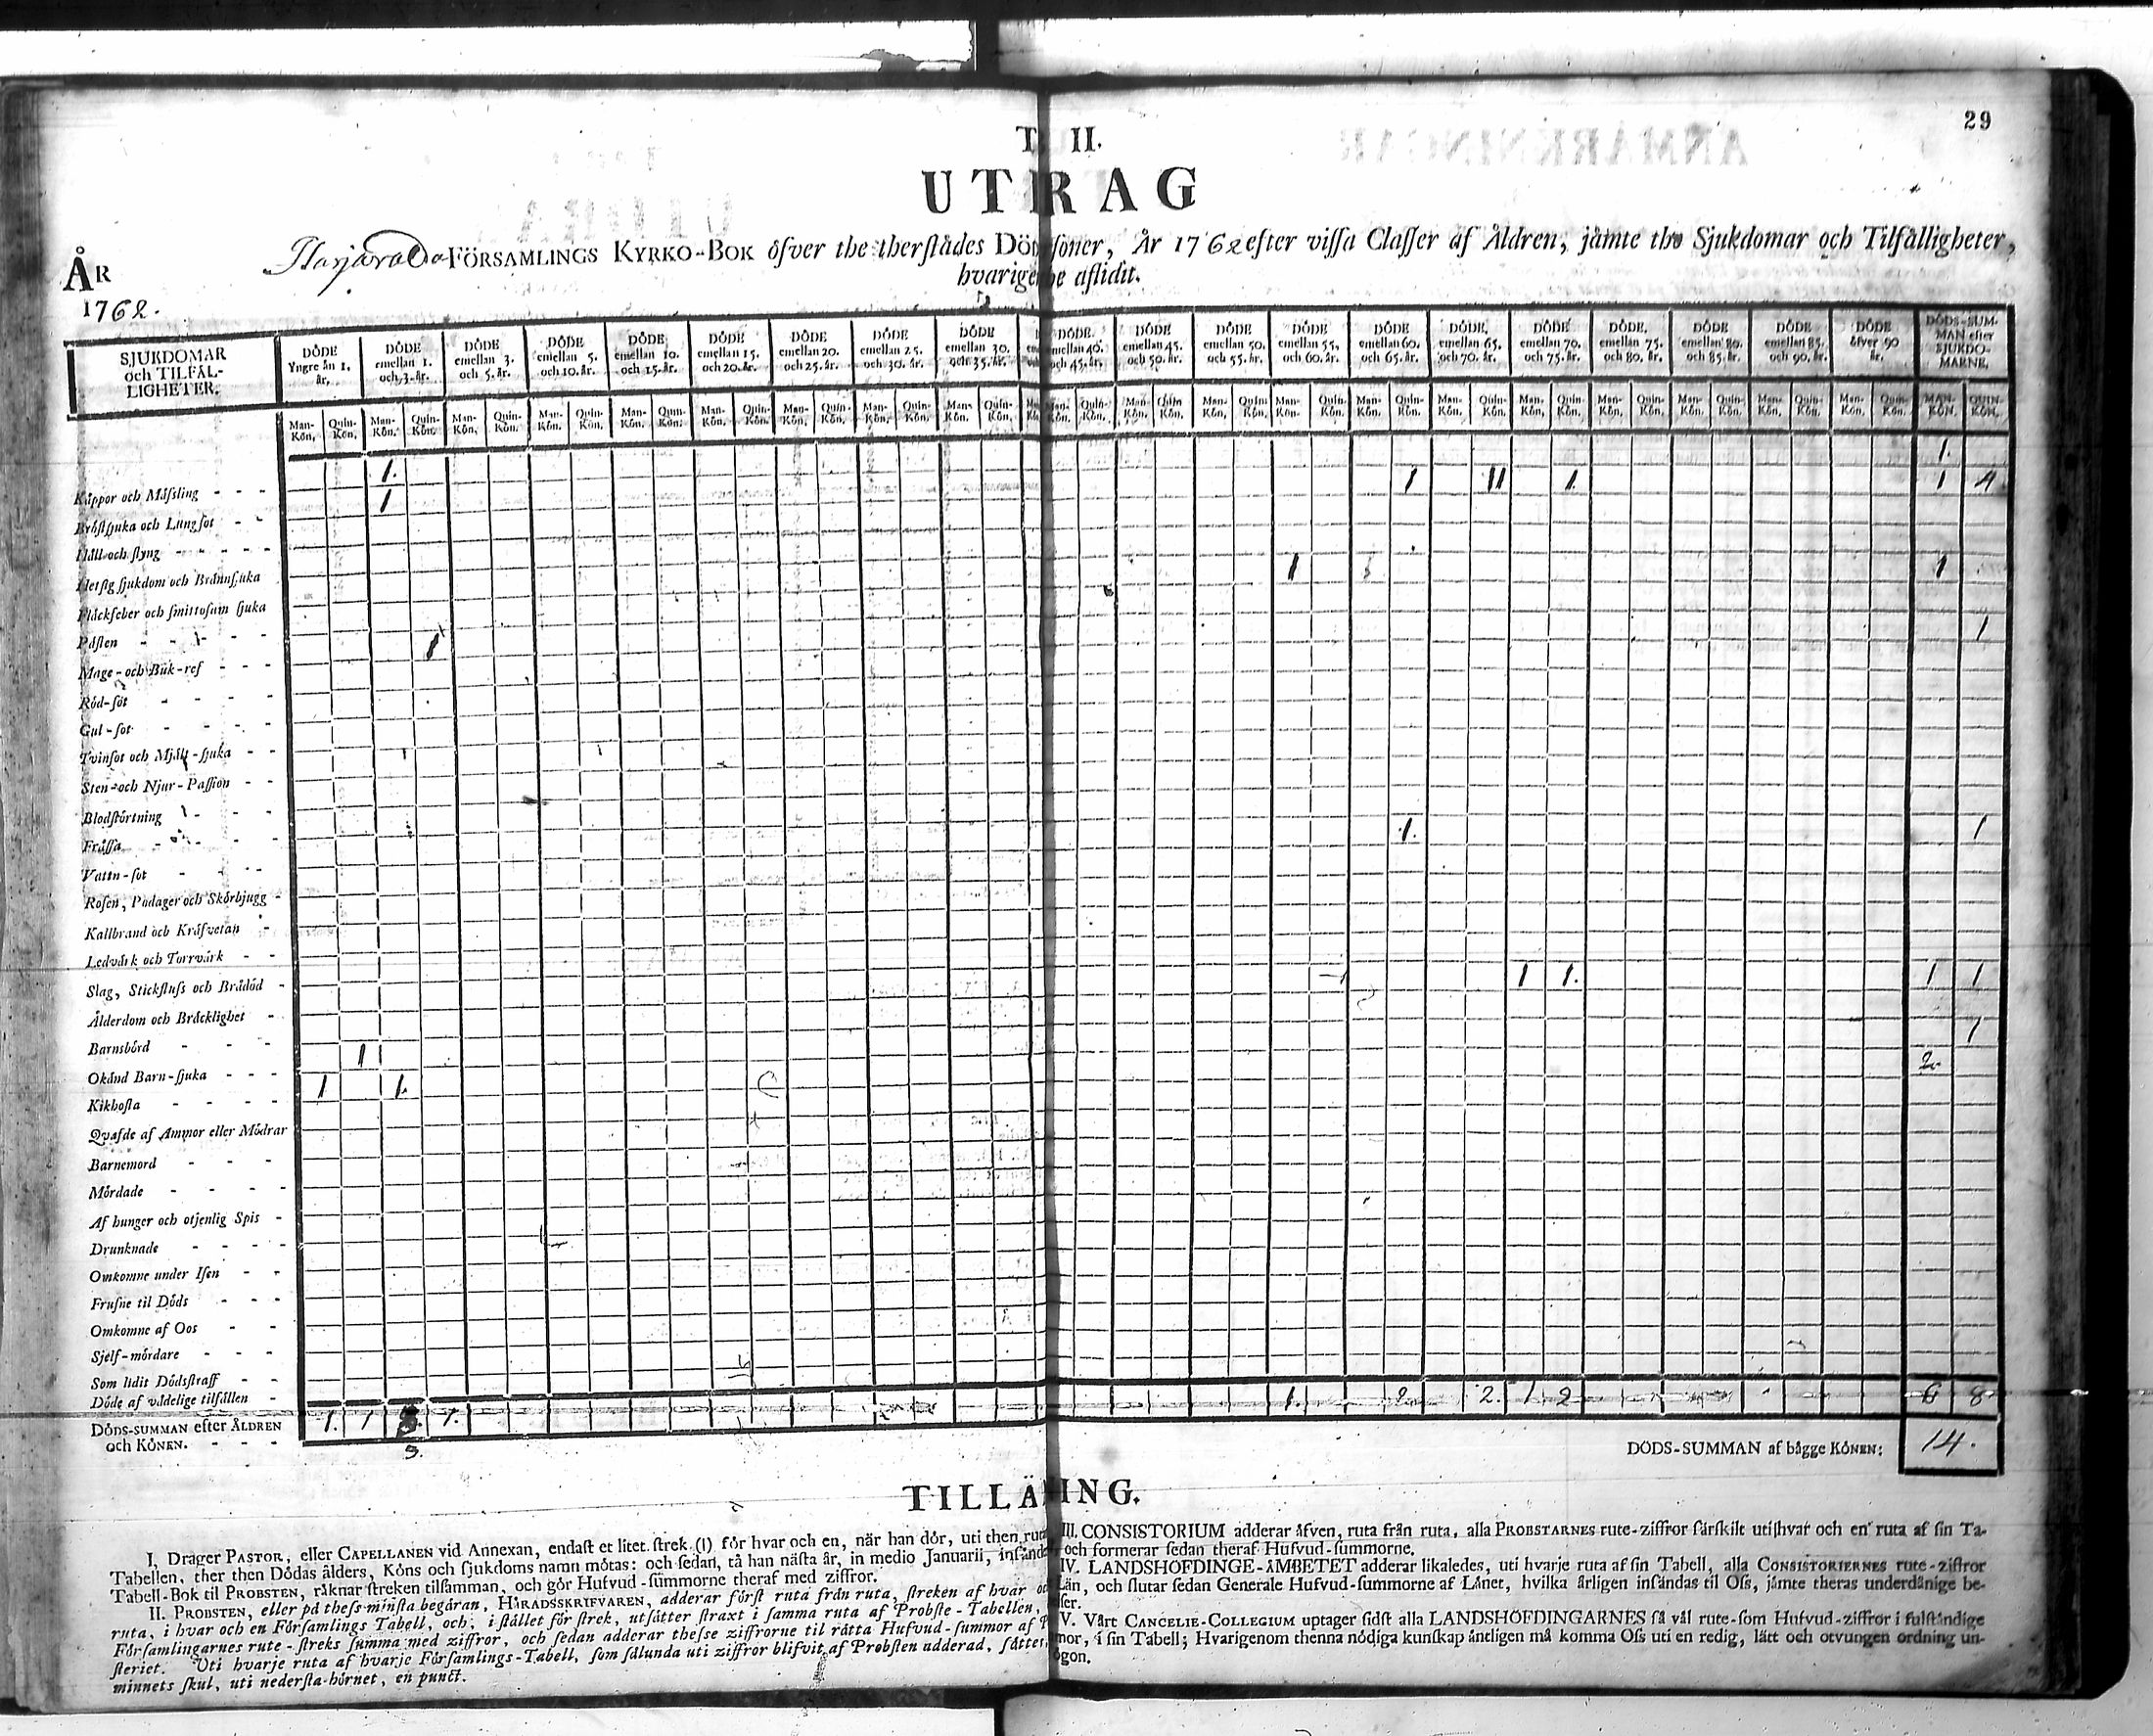 29
T. II.
UTRAG
FÖRSAMLINGS KYRKO-BOK öfver the therstådes Dö soner, År 1762 efter vissa Classer af Åldren, jämte the Sjukdomar och Tilfälligheter,
hvarigenne aflidit.
ÅR
1762.
SJUKDOMAR och TILFÄL-LIGHETER.
DÖDE Yngre än 1. år.
DÖDE emellan 1. och 3. år.
DÖDE emellan 3. och 5. år.
DÖDE emellan 5. och 10. år.
DÖDE emellan 10. och 15. år.
DÖDE emellan 15. och 20. år.
DÖDE emellan 20. och 25. år.
DÖDE emellan 25. och 30. år.
DÖDE emellan 30. och 35. år.
DÖDE. emellan 40. och 45. år.
DÖDE emellan 45. och 50. år.
DÖDE emellan 50. och 55. år.
DÖDE emellan 55. och 60. år.
DÖDE emellan 60. och 65. år.
DÖDE. emellan 65. och 70. år.
DÖDE emellan 70. och 75. år.
DÖDE. emellan 75. och 80. år.
DÖDE emellan 80. och 85. år.
DÖDE emellan 85. och 90. år.
DÖDE öfver 90 år.
DÖDS-SUM-MAN efter SJUKDO-MARNE.
Man-Kön. Quin-Kön.
1.
1. 1 11 1 1 4
Koppor och Mäsling - - - 1
Bröstsjuka och Lungsot - -
Håll och styng - - - - -
1 1
Hetsig sjukdom och Brännsjuka
Fläckfeber och smittosam sjuka
1
Pästen - - - - - 1
Mage- och Buk-ref - - -
Röd-sot - - - -
Gul-sot - - - -
Tvinsot och Mjält-sjuka - -
Sten- och Njur-Passion - -
Blodstörtning - - -
1. 1
Frossa - - - -
Vattn-sot - - - -
Rosen, Podager och Skörbjugg -
Kallbrand och Kräfvetan -
Ledvärk och Torrvärk - -
1 1. 1 1
Slag, Stickfluss och Brådöd -
Ålderdom och Bräcklighet -
1
Barnsbörd - - - 1
2.
Okänd Barn-sjuka - - - 1 1.
Kikhosta - - - -
Qvafde af Ammor eller Mödrar
Barnemord - - -
Mördade - - - -
Af hunger och otjenlig Spis -
Drunknade - - - -
Omkomne under Isen - -
Frusne til Döds - - -
Omkomne af Oos - -
Sjelf-mördare - - -
Som lidit Dödsstraff - -
Döde af våldelige tilfällen -
DÖDS-SUMMAN efter ÅLDREN och KÖNEN. - - - 1. 1 1. 1. 2 2. 1 2 6 8
3.
DÖDS-SUMMAN af bägge KÖNEN: 14.
TILLÄ ING.
I. Drager PASTOR, eller CAPELLANEN vid Annexan, endast et litet strek (I) för hvar och en, när han dör, uti then ruta
Tabellen, ther then Dödas ålders, Köns och sjukdoms namn mötas: och sedan, tå han nästa år, in medio Januarii, insände
Tabell-Bok til PROBSTEN, räknar streken tilsamman, och gör Hufvud-summorne theraf med ziffror.
II. PROBSTEN, eller på thess minsta begäran, HÄRADSSKRIFVAREN, adderar först ruta från ruta, streken af hvar
ruta, i hvar och en Församlings Tabell, och, i stället för strek, utsätter straxt i samma ruta af Probste-Tabellen,
Församlingarnes rute-streks summa med ziffror, och sedan adderar thesse ziffrorne til rätta Hufvud-summor af
steriet. Uti hvarje ruta af hvarje Församlings-Tabell, som sålunda uti ziffror blifvit af Probsten adderad, sätter
minnets skul, uti nedersta hörnet, en punct.
III. CONSISTORIUM adderar äfven, ruta från ruta, alla PROBSTARNES rute-ziffror särskilt uti hvar och en ruta af sin Ta-
och formerar sedan theraf Hufvud-summorne.
IV. LANDSHÖFDINGE-ÄMBETET adderar likaledes, uti hvarje ruta af sin Tabell, alla CONSISTORIERNES rute-ziffror
Län, och slutar sedan Generale Hufvud-summorne af Länet, hvilka årligen insändas til Oss, jämte theras underdånige be-
ser.
V. Vårt CANCELIE-COLLEGIUM uptager sidst alla LANDSHÖFDINGARNES så väl rute- som Hufvud-ziffror i fulständige
mor, i sin Tabell; Hvarigenom thenna nödiga kunskap äntligen må komma Oss uti en redig, lätt och otvungen ordning un-
ögon.